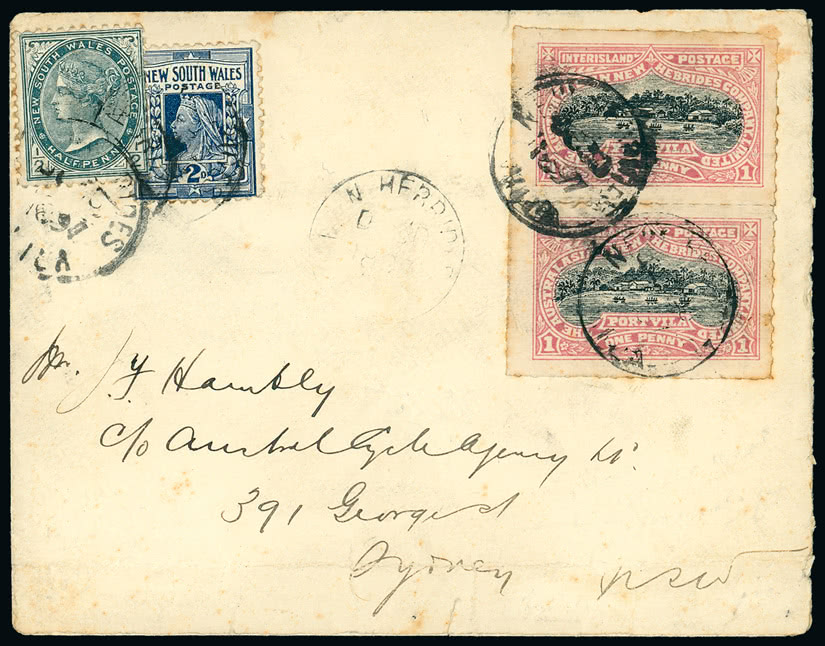 NEW SOUTH WALES POSTAGE
1/2 HALFPENNY
NEW SOUTH WALES
POSTAGE
2D
INTERISLAND POSTAGE
NEW HEBRIDES COMPANY LIMITED
PORT VILA
1 ONE PENNY 1
POSTAGE
THE AUSTRALASIAN NEW HEBRIDES COMPANY LIMITED
PORT VILA
1 ONE PENNY 1
Mr. J. Y Hambly
c/o Austral Cycle Agency Lt.
391 George st
Sydney NSW